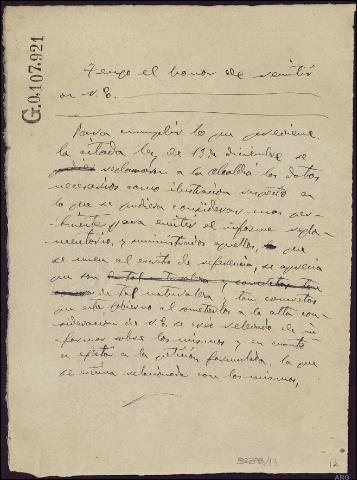 G.0.107.921
Tengo el honor de remitir
a V.E.
Para cumplir lo que previene
la citada ley de 19 de diciembre se
reclamaron a la alcaldía los datos
necesarios como ilustración respecto en
lo que se pudiera considerar mas per-
tinente para emitir el informe regla-
mentario, y suministrados aquellos, que
se unen al escrito de referencia, se aprecia
que son
de tal naturaleza y tan concretos
que este Gobierno al someterlos a la alta con-
sideración de V.E. se cree relevado de in-
formar sobre los mismos y en cuanto
a efectos a la petición formulada, la que
se estima relacionada con los mismos,
12
ARG